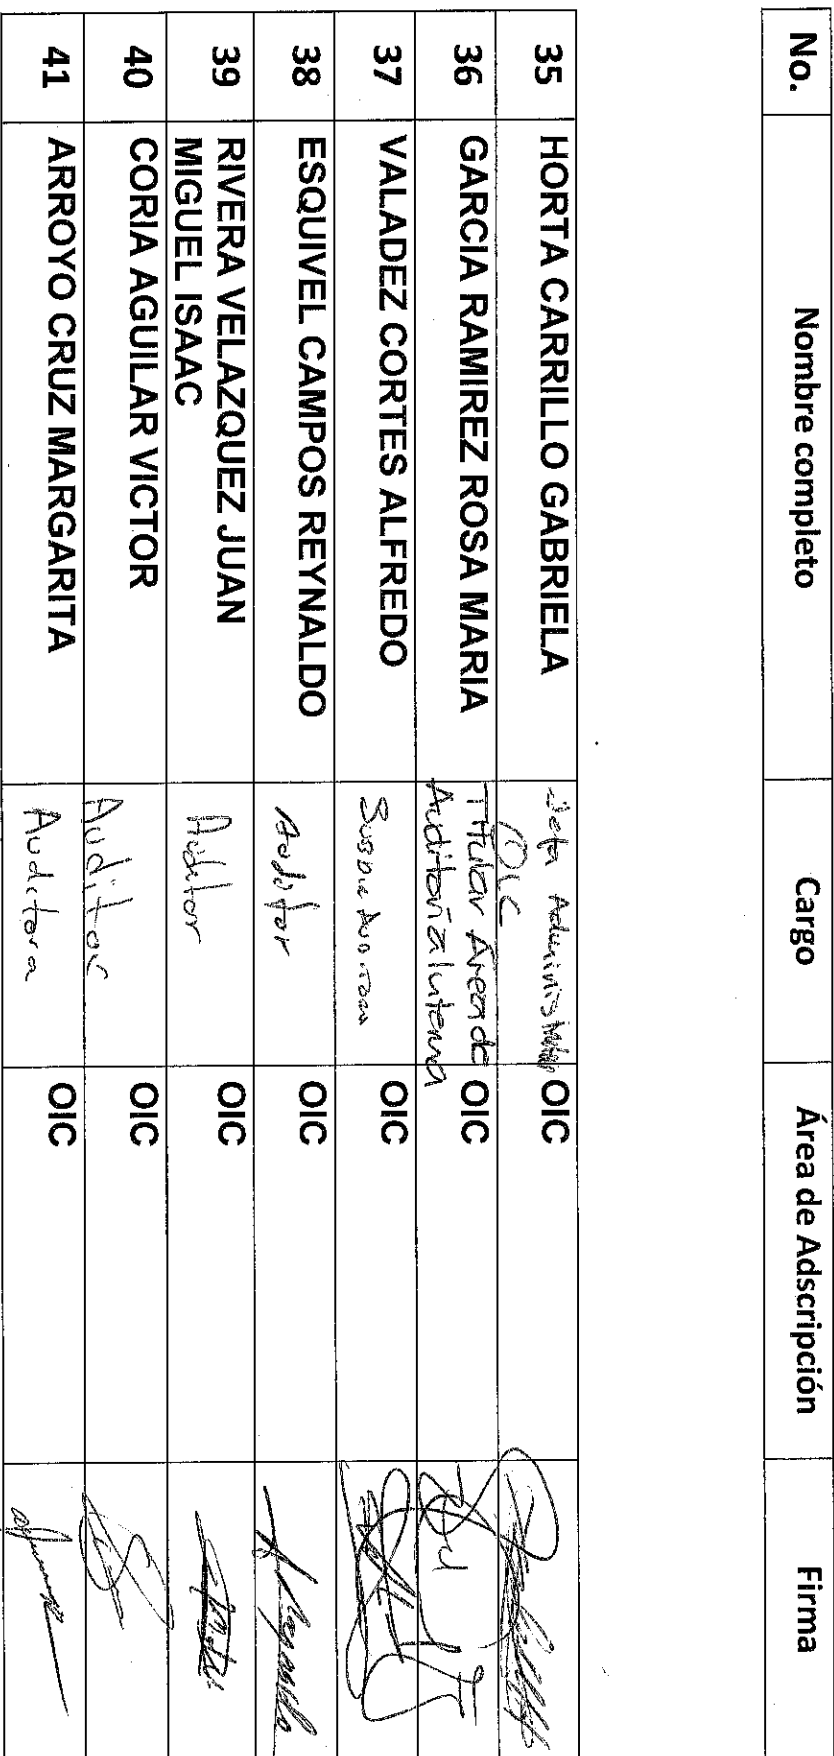 No. Nombre completo Cargo Área de Adscripción Firma
35 HORTA CARRILLO GABRIELA Jefa Administrativo OIC
OIC
36 GARCIA RAMIREZ ROSA MARIA Titular Área de OIC
Auditoría Interna
37 VALADEZ CORTES ALFREDO OIC
38 ESQUIVEL CAMPOS REYNALDO Auditor OIC
39 RIVERA VELAZQUEZ JUAN Auditor OIC
MIGUEL ISAAC
40 CORIA AGUILAR VICTOR Auditor OIC
41 ARROYO CRUZ MARGARITA Auditora OIC